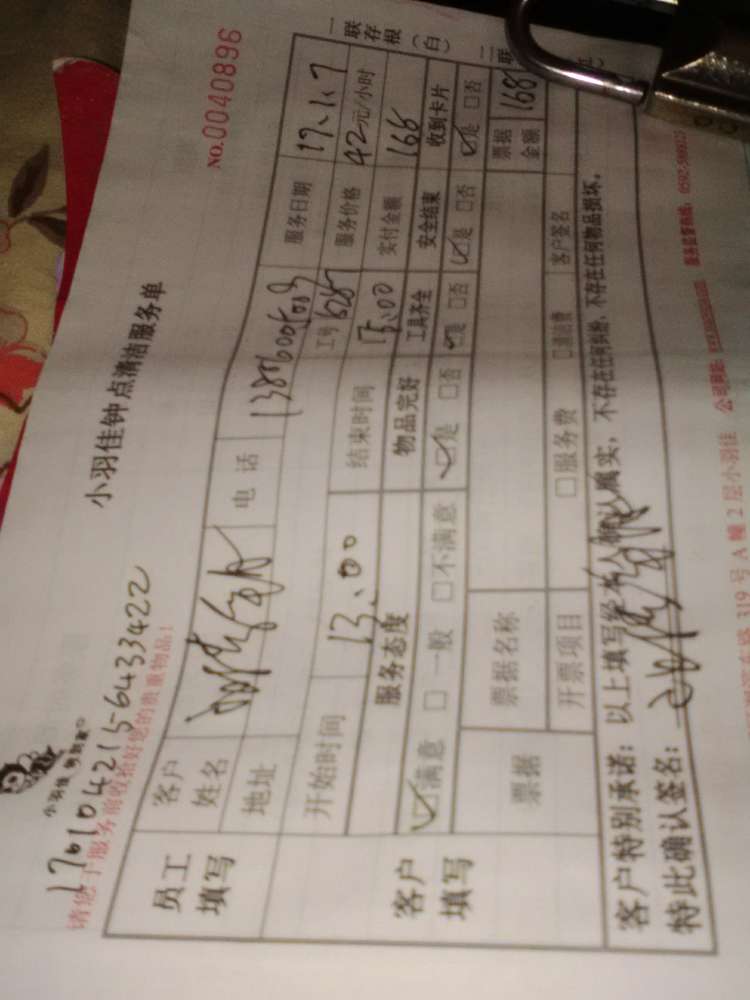 小羽佳钟点清洁服务单
NO.0040896
1701042156433422
请您于服务前收拾好您的贵重物品！
员工填写
客户姓名
电话
服务日期 17.1.7
地址
工号
服务价格 42元/小时
开始时间 13:00
结束时间 17:00
实付金额 168
客户填写
服务态度
物品完好
工具齐全
安全结束
收到卡片
☑满意 □一般 □不满意
☑是 □否
☑是 □否
☑是 □否
☑是 □否
票据
票据名称
票据金额 168
开票项目
□服务费
□清洁费
客户签名
客户特别承诺：以上填写经本人确认属实，不存在任何纠纷，不存在任何物品损坏。
特此确认签名：
一联存根（白）
二联
319号A幢2层小羽佳
公司网站：